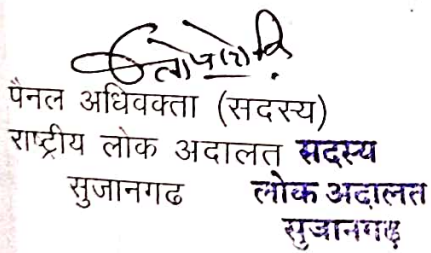 पैनल अधिवक्ता (सदस्य)
राष्ट्रीय लोक अदालत सदस्य
सुजानगढ लोक अदालत
सुजानगढ़